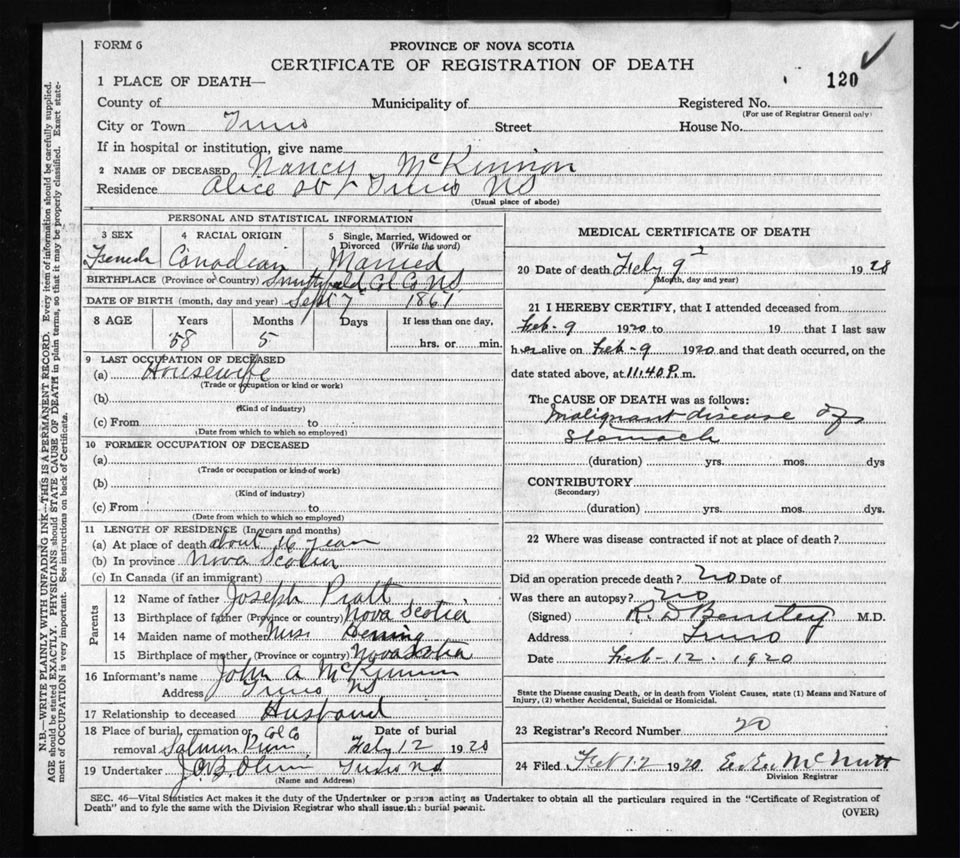 FORM 6
PROVINCE OF NOVA SCOTIA
CERTIFICATE OF REGISTRATION OF DEATH
120
1 PLACE OF DEATH—
County of Municipality of Registered No.
(For use of Registrar General only)
City or Town Truro Street House No.
If in hospital or institution, give name
2 NAME OF DECEASED Nancy McKinnon
Residence Alice St Truro NS
(Usual place of abode)
PERSONAL AND STATISTICAL INFORMATION
3 SEX 4 RACIAL ORIGIN 5 Single, Married, Widowed or Divorced (Write the word)
Canadian Married
BIRTHPLACE (Province or Country) Smithfield Col Co NS
DATE OF BIRTH (month, day and year) Sept 7 1861
8 AGE Years Months Days If less than one day,
58 5 hrs. or min.
9 LAST OCCUPATION OF DECEASED
(a) Housewife
(Trade or occupation or kind of work)
(b)
(Kind of industry)
(c) From to
(Date from which to which so employed)
10 FORMER OCCUPATION OF DECEASED
(a)
(Trade or occupation or kind of work)
(b)
(Kind of industry)
(c) From to
(Date from which to which so employed)
11 LENGTH OF RESIDENCE (In years and months)
(a) At place of death about 16 years
(b) In province Nova Scotia
(c) In Canada (if an immigrant)
Parents
12 Name of father Joseph Pratt
13 Birthplace of father (Province or country) Nova Scotia
14 Maiden name of mother Miss
15 Birthplace of mother (Province or country) Nova Scotia
16 Informant's name John A McKinnon
Address Truro NS
17 Relationship to deceased Husband
18 Place of burial, cremation or removal Salmon River Col Co
Date of burial Feby 12 1920
19 Undertaker Truro NS
(Name and Address)
MEDICAL CERTIFICATE OF DEATH
20 Date of death Feby 9 1920
(Month, day and year)
21 I HEREBY CERTIFY, that I attended deceased from
Feb-9 1920 to 19 that I last saw
her alive on Feb-9 1920 and that death occurred, on the
date stated above, at 11.40 P. m.
The CAUSE OF DEATH was as follows:
Malignant disease of
Stomach
(duration) yrs. mos. dys
CONTRIBUTORY
(Secondary)
(duration) yrs. mos. dys.
22 Where was disease contracted if not at place of death?
Did an operation precede death? no Date of
Was there an autopsy? no
(Signed) R. D. Bentley M.D.
Address Truro
Date Feb-12. 1920
State the Disease causing Death, or in death from Violent Causes, state (1) Means and Nature of
Injury, (2) whether Accidental, Suicidal or Homicidal.
23 Registrar's Record Number 20
24 Filed Feb 12 1920 McNutt
Division Registrar
SEC. 46—Vital Statistics Act makes it the duty of the Undertaker or person acting as Undertaker to obtain all the particulars required in the "Certificate of Registration of
Death" and to fyle the same with the Division Registrar who shall issue the burial permit.
(OVER)
N.B.—WRITE PLAINLY WITH UNFADING INK—THIS IS A PERMANENT RECORD. Every item of information should be carefully supplied.
AGE should be stated EXACTLY. PHYSICIANS should STATE CAUSE OF DEATH in plain terms, so that it may be properly classified. Exact state-
ment of OCCUPATION is very important. See instructions on back of Certificate.